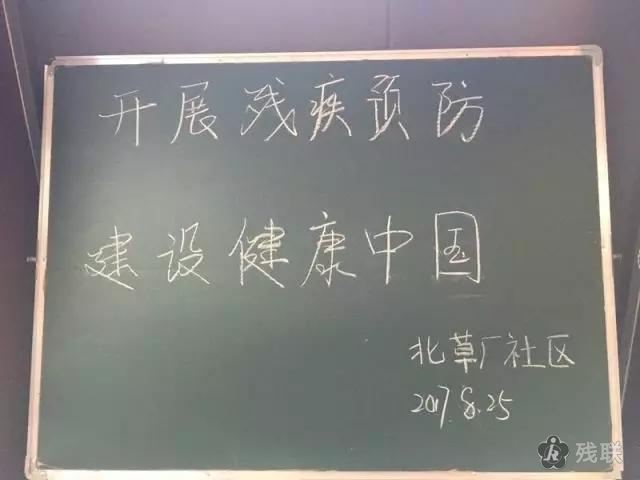 开展残疾预防
建设健康中国
北草厂社区
2017.8.25
残联